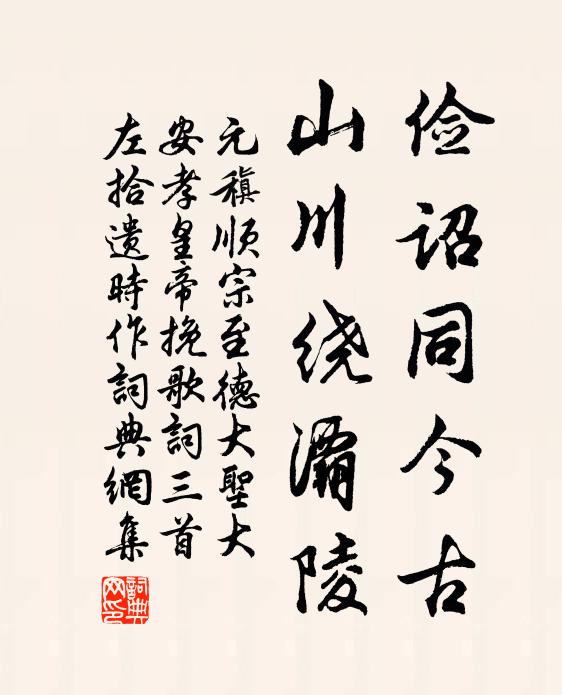 俭诏同今古
山川绕灞陵
元稹顺宗至德大聖大
安孝皇帝挽歌詞三首
左拾遗時作詞典網集
詞典网印